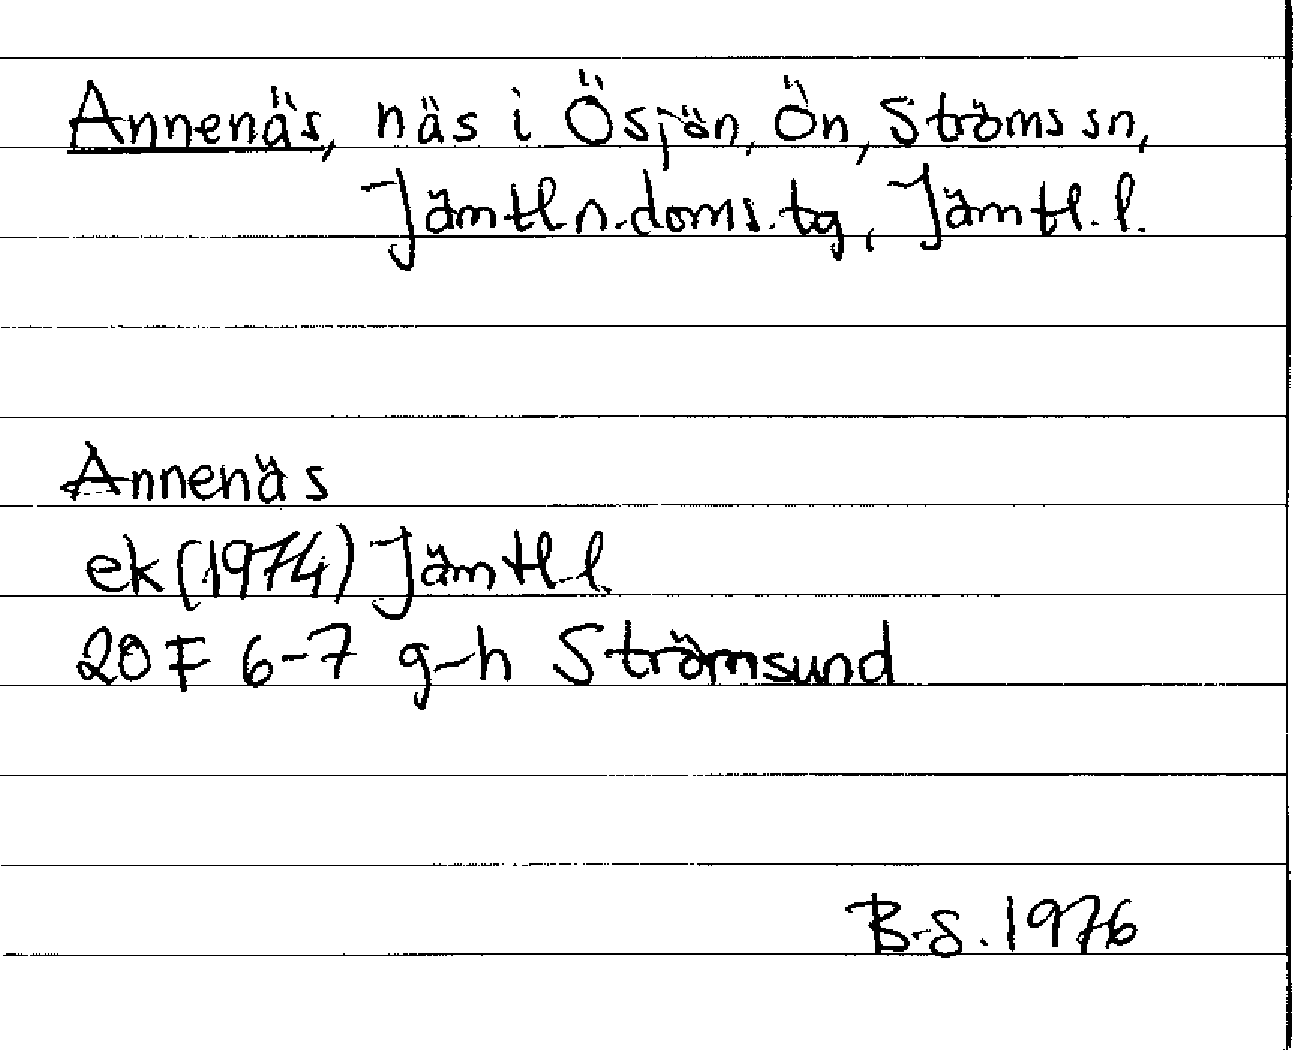 Annenäs, näs i Ösjön, Ön, Ströms sn,
Jämtl n. doms. tg, Jämtl. l.
Annenäs
ek (1974) Jämtl l
20 F 6-7 g-h Strömsund
B-S. 1976